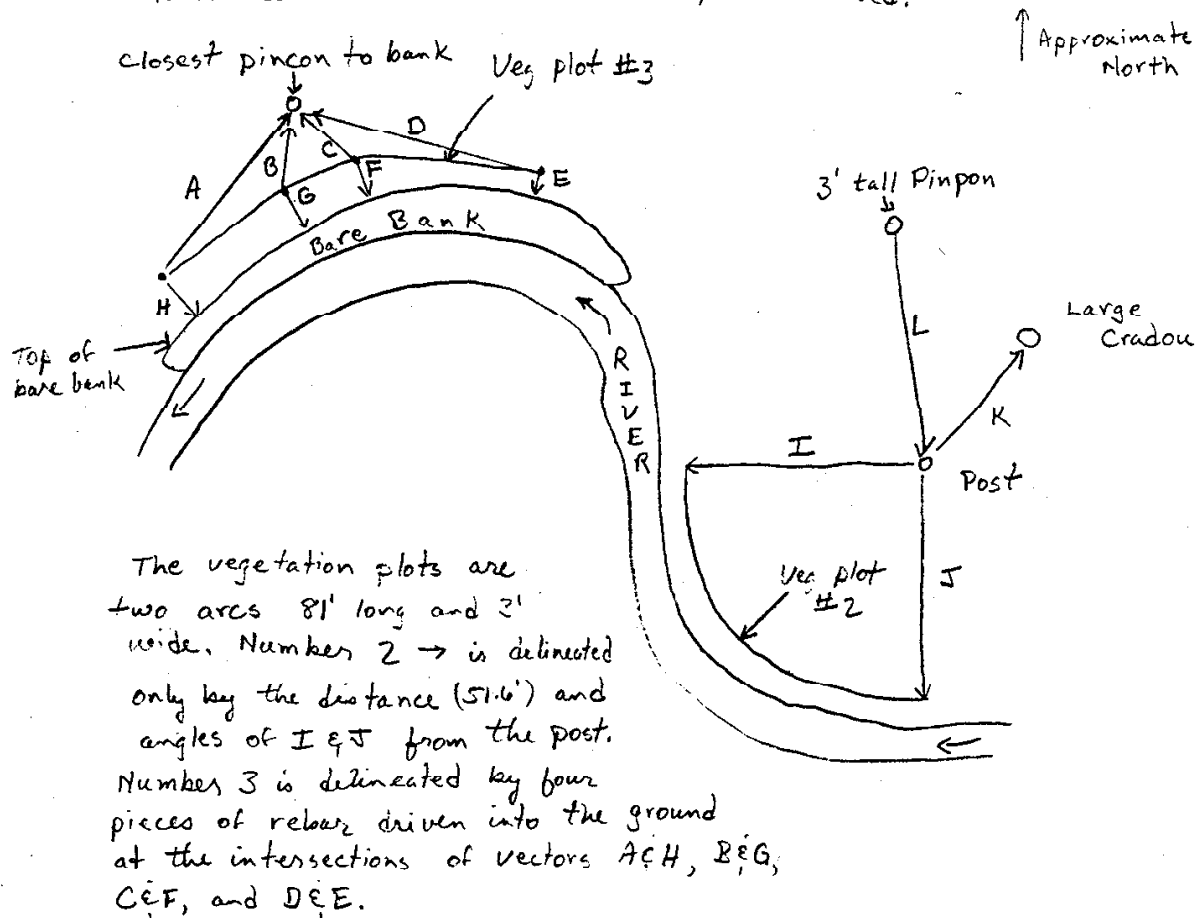 Approximate
North
closest pincon to bank
Veg plot #3
D
A
B
C
F
E
G
H
Bare Bank
3' tall Pinpon
Large
Cradou
L
K
Top of
bare bank
RIVER
I
Post
J
Veg plot
#2
The vegetation plots are
two arcs 81' long and 2'
wide. Number 2 → is delineated
only by the distance (51.6') and
angles of I & J from the post.
Number 3 is delineated by four
pieces of rebar driven into the ground
at the intersections of vectors A & H, B & G,
C & F, and D & E.